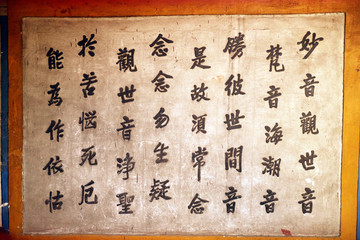 妙音觀世音
梵音海潮音
勝彼世間音
是故須常念
念念勿生疑
觀世音淨聖
於苦惱死厄
能為作依怙